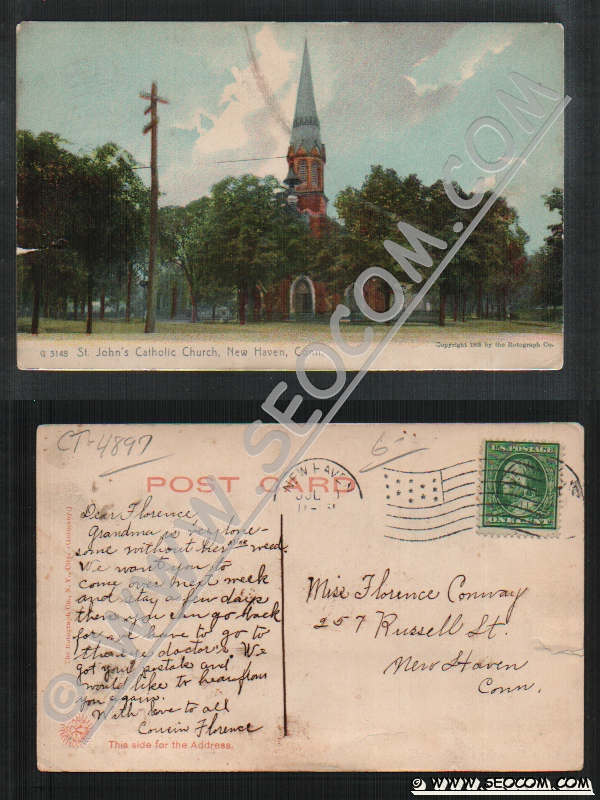 G 5148 St. John's Catholic Church, New Haven, Conn.
Copyright 1905 by the Rotograph Co.
© WWW.SEOCOM.COM
CT-4897
6
POST CARD
NEW HAVEN
JUL
U.S. POSTAGE
ONE CENT
The Rotograph Co., N. Y. City. (Germany)
Dear Florence
Grandma is very lone-
some without her weed.
We want you to
come over next week
and stay a few days
then you can go back
for we have to go to
the doctor's. We
got your postale and
would like to hear from
you again.
With love to all
Cousin Florence
This side for the Address.
Miss Florence Conway
257 Russell St.
New Haven
Conn.
© WWW.SEOCOM.COM